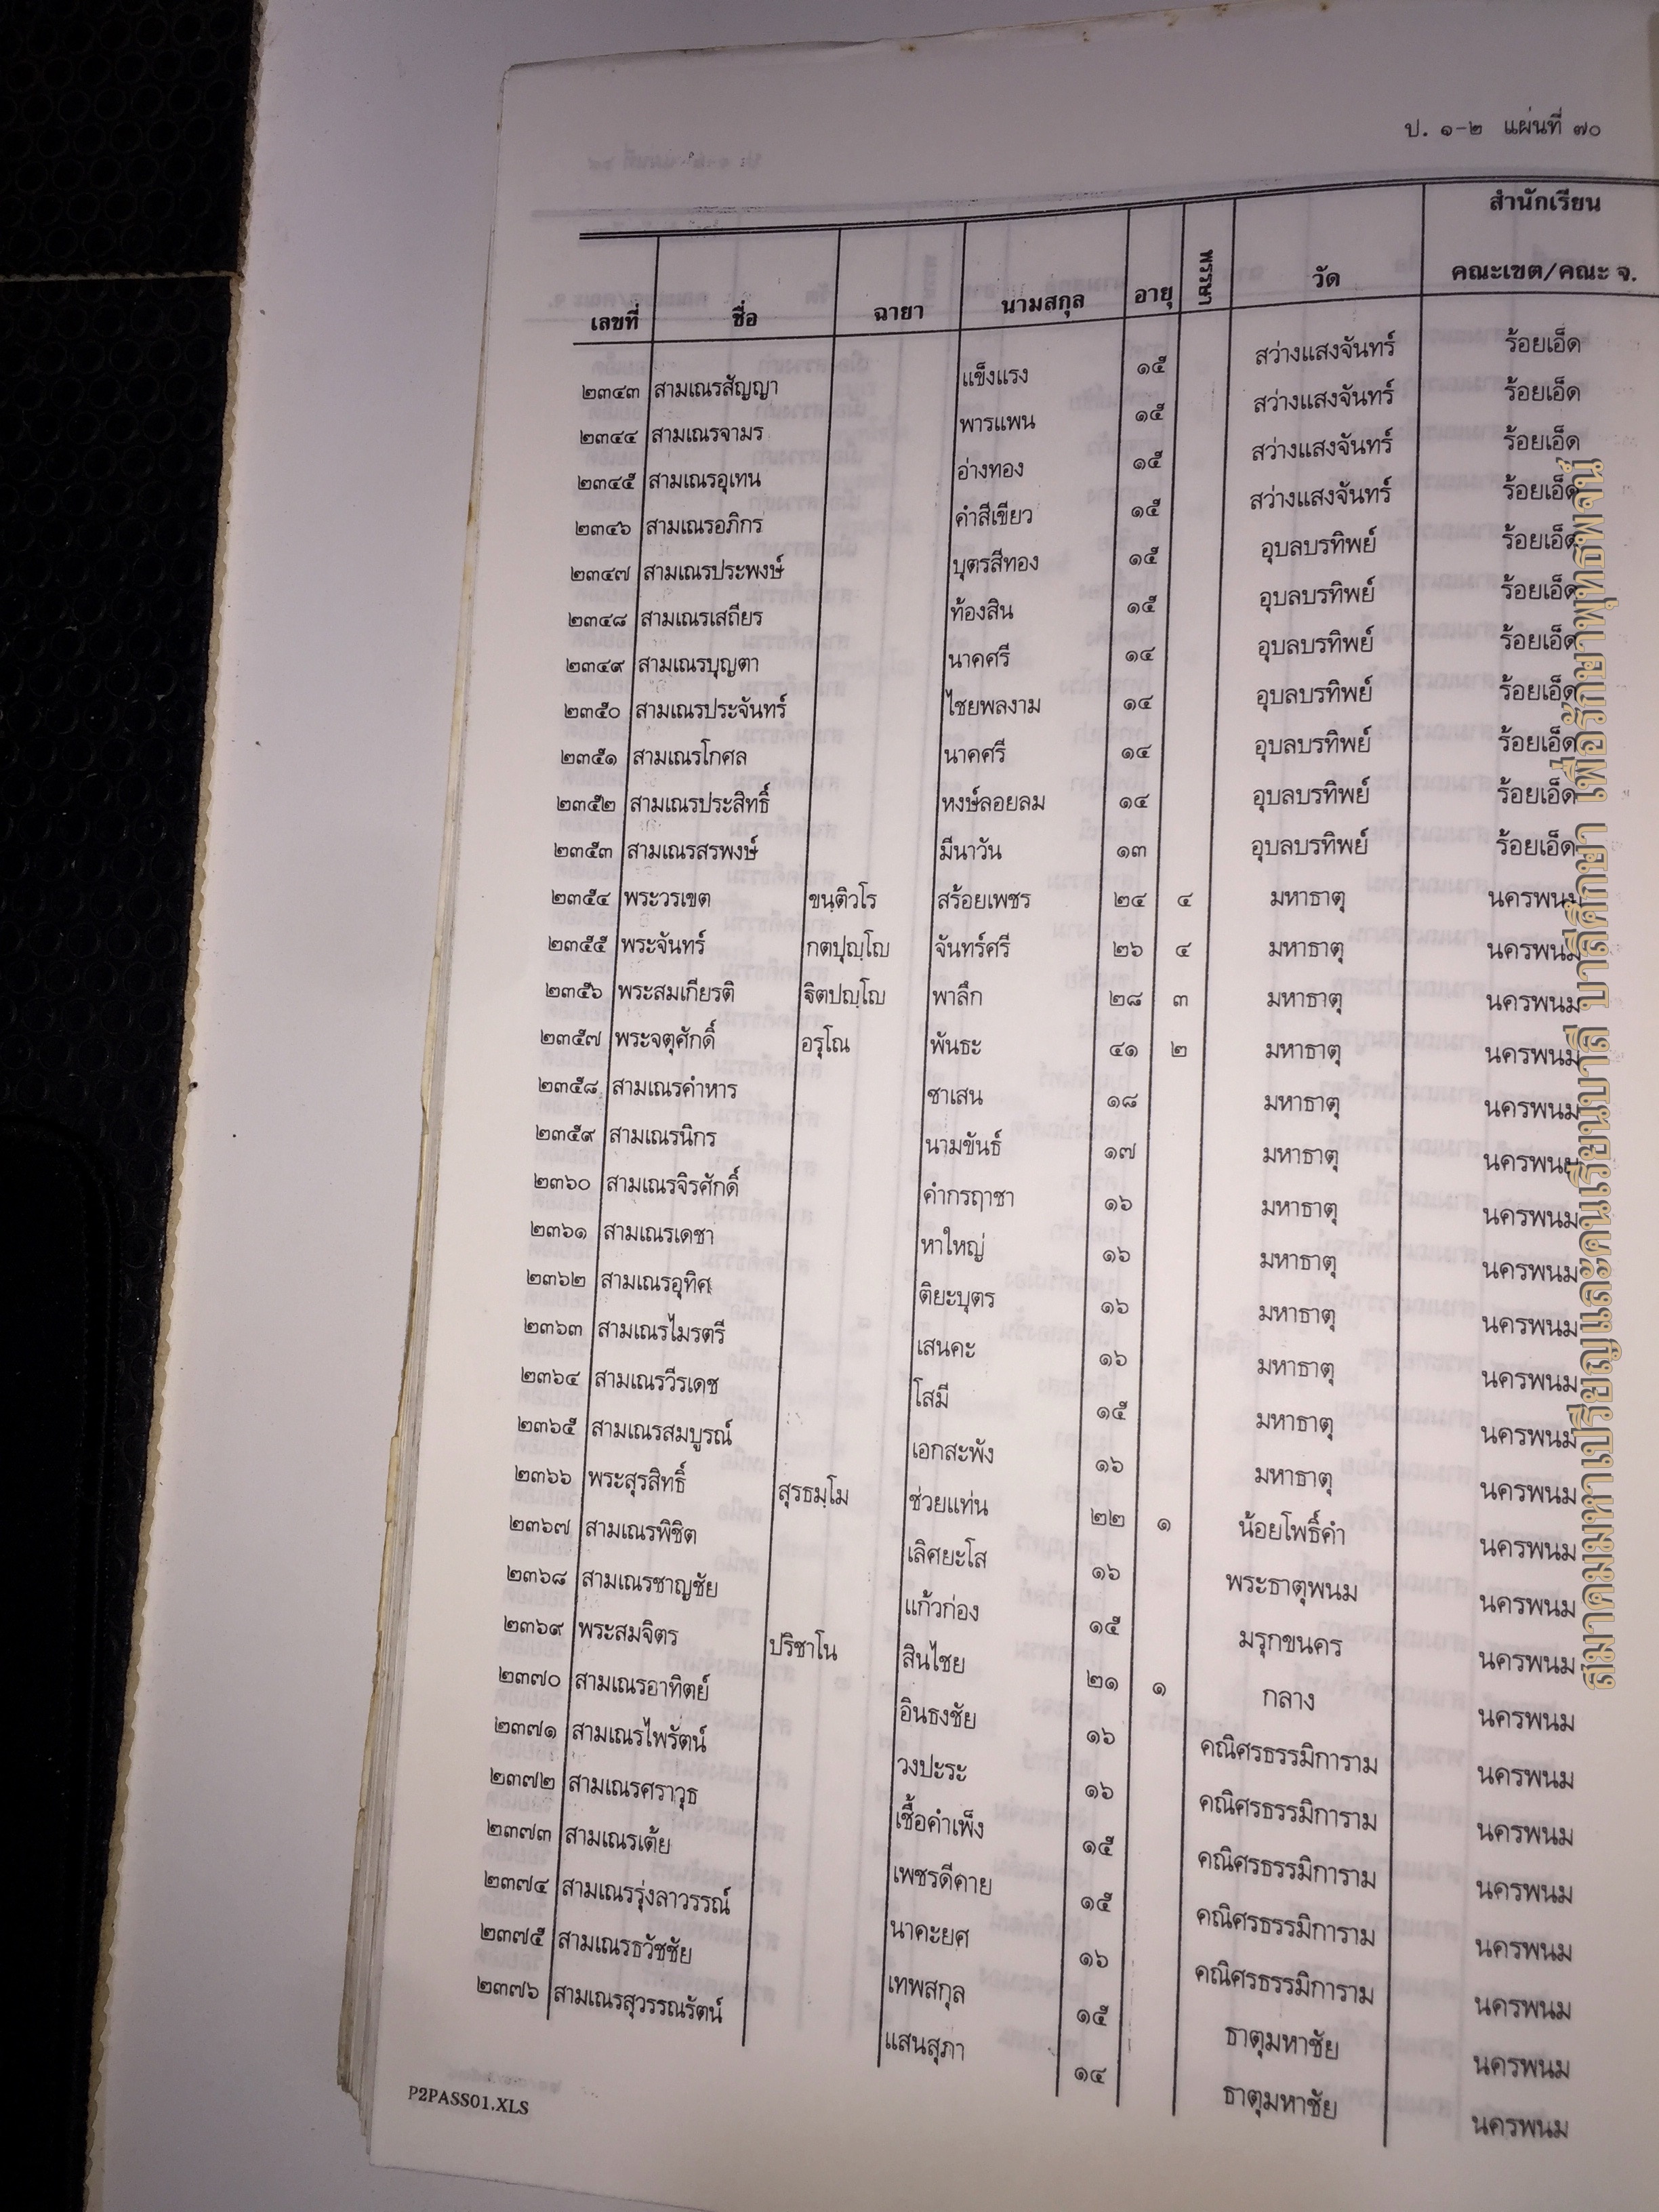 ป. ๑-๒ แผ่นที่ ๗๐
เลขที่ ชื่อ ฉายา นามสกุล อายุ พรรษา วัด สำนักเรียน คณะเขต/คณะ จ.
๒๓๔๓ สามเณรสัญญา แข็งแรง ๑๕ สว่างแสงจันทร์ ร้อยเอ็ด
๒๓๔๔ สามเณรจามร พารแพน ๑๕ สว่างแสงจันทร์ ร้อยเอ็ด
๒๓๔๕ สามเณรอุเทน อ่างทอง ๑๕ สว่างแสงจันทร์ ร้อยเอ็ด
๒๓๔๖ สามเณรอภิกร คำสีเขียว ๑๕ สว่างแสงจันทร์ ร้อยเอ็ด
๒๓๔๗ สามเณรประพงษ์ บุตรสีทอง ๑๕ อุบลบรทิพย์ ร้อยเอ็ด
๒๓๔๘ สามเณรเสถียร ท้องสิน ๑๕ อุบลบรทิพย์ ร้อยเอ็ด
๒๓๔๙ สามเณรบุญตา นาคศรี ๑๔ อุบลบรทิพย์ ร้อยเอ็ด
๒๓๕๐ สามเณรประจันทร์ ไชยพลงาม ๑๔ อุบลบรทิพย์ ร้อยเอ็ด
๒๓๕๑ สามเณรโกศล นาคศรี ๑๔ อุบลบรทิพย์ ร้อยเอ็ด
๒๓๕๒ สามเณรประสิทธิ์ หงษ์ลอยลม ๑๔ อุบลบรทิพย์ ร้อยเอ็ด
๒๓๕๓ สามเณรสรพงษ์ มีนาวัน ๑๓ อุบลบรทิพย์ ร้อยเอ็ด
๒๓๕๔ พระวรเขต ขนฺติวโร สร้อยเพชร ๒๔ ๔ มหาธาตุ นครพนม
๒๓๕๕ พระจันทร์ กตปุญฺโญ จันทร์ศรี ๒๖ ๔ มหาธาตุ นครพนม
๒๓๕๖ พระสมเกียรติ ฐิตปญฺโญ พาลึก ๒๘ ๓ มหาธาตุ นครพนม
๒๓๕๗ พระจตุศักดิ์ อรุโณ พันธะ ๔๑ ๒ มหาธาตุ นครพนม
๒๓๕๘ สามเณรคำหาร ชาเสน ๑๘ มหาธาตุ นครพนม
๒๓๕๙ สามเณรนิกร นามขันธ์ ๑๗ มหาธาตุ นครพนม
๒๓๖๐ สามเณรจิรศักดิ์ คำกรฤาชา ๑๖ มหาธาตุ นครพนม
๒๓๖๑ สามเณรเดชา หาใหญ่ ๑๖ มหาธาตุ นครพนม
๒๓๖๒ สามเณรอุทิศ ติยะบุตร ๑๖ มหาธาตุ นครพนม
๒๓๖๓ สามเณรไมรตรี เสนคะ ๑๖ มหาธาตุ นครพนม
๒๓๖๔ สามเณรวีรเดช โสมี ๑๕ มหาธาตุ นครพนม
๒๓๖๕ สามเณรสมบูรณ์ เอกสะพัง ๑๖ มหาธาตุ นครพนม
๒๓๖๖ พระสุรสิทธิ์ สุรธมฺโม ช่วยแท่น ๒๒ ๑ น้อยโพธิ์คำ นครพนม
๒๓๖๗ สามเณรพิชิต เลิศยะโส ๑๖ พระธาตุพนม นครพนม
๒๓๖๘ สามเณรชาญชัย แก้วก่อง ๑๕ มรุกขนคร นครพนม
๒๓๖๙ พระสมจิตร ปริชาโน สินไชย ๒๑ ๑ กลาง นครพนม
๒๓๗๐ สามเณรอาทิตย์ อินธงชัย ๑๖ คณิศรธรรมิการาม นครพนม
๒๓๗๑ สามเณรไพรัตน์ วงปะระ ๑๖ คณิศรธรรมิการาม นครพนม
๒๓๗๒ สามเณรศราวุธ เชื้อคำเพ็ง ๑๕ คณิศรธรรมิการาม นครพนม
๒๓๗๓ สามเณรเต้ย เพชรดีคาย ๑๕ คณิศรธรรมิการาม นครพนม
๒๓๗๔ สามเณรรุ่งลาวรรณ์ นาคะยศ ๑๖ คณิศรธรรมิการาม นครพนม
๒๓๗๕ สามเณรธวัชชัย เทพสกุล ๑๕ ธาตุมหาชัย นครพนม
๒๓๗๖ สามเณรสุวรรณรัตน์ แสนสุภา ๑๔ ธาตุมหาชัย นครพนม
P2PASS01.XLS
สมาคมมหาเปรียญและคนเรียนบาลี บาลีศึกษา เพื่อรักษาพุทธพจน์